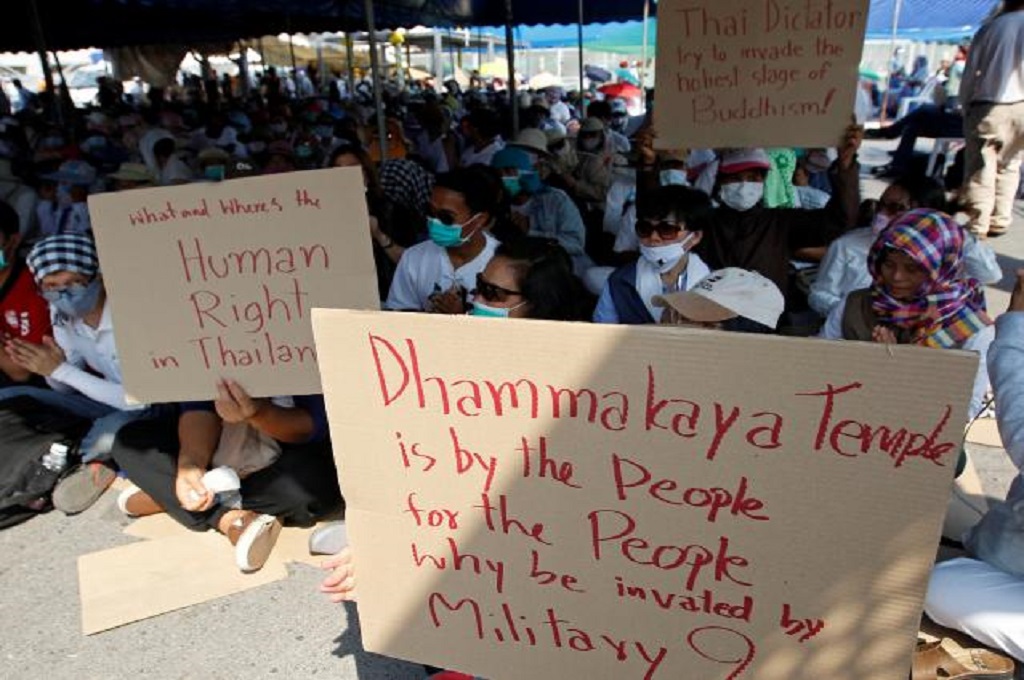 Thai Dictator
try to invade the
holiest stage of
Buddhism!
What and Where's the
Human
Right
in Thailan
Dhammakaya Temple
is by the People
for the People
why be invated by
Military?